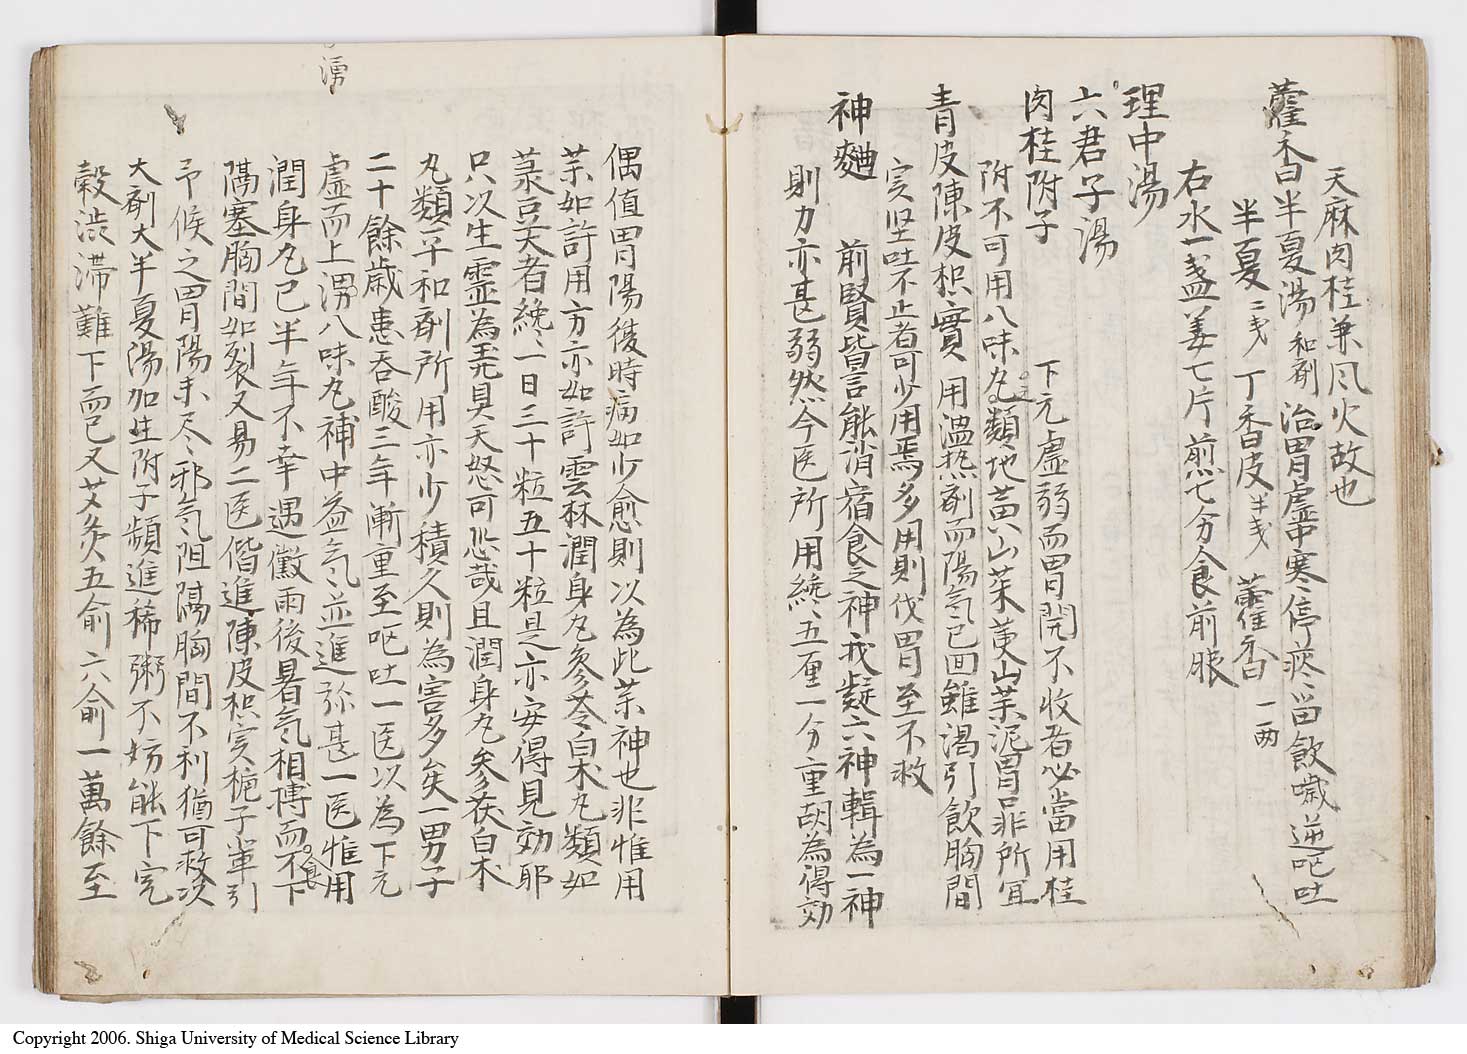 天麻肉桂兼风火故也
藿香半夏湯 和剤 治胃虚中寒停痰留飲噦逆呕吐
半夏 二戋 丁香皮 半戋 藿香 一两
右水一盏姜七片煎七分食前服
理中湯
六君子湯
肉桂附子 下元虚弱而胃開不收者必當用桂
附不可用八味丸之類地黄山茱萸山茱泥胃口非所冝
青皮陳皮枳實 用温热剤而陽気已回雖渇引飲胸間
実坚吐不止者可少用焉多用則伐胃至不救
神麯 前賢皆言能消宿食之神我疑六神輯為一神
則力亦甚弱然今医所用纔五厘一分重胡為得効
湧
偶值胃陽後時痛如少愈則以為此茱神也非惟用
茱如許用方亦如許雲林潤身丸参苓白朮丸類如
菉豆大者纔一日三十粒五十粒是亦安得見効耶
只以生霊為羌具天怒可恐哉且潤身丸参茯白朮
丸類平和剤所用亦少積久則為害多矣一男子
二十餘歳患吞酸三年漸重至呕吐一医以為下元
虚而上湧八味丸補中益气並進弥甚一医惟用
潤身丸已半年不幸遇黴雨後暑気相搏而食不下
隔塞胸間如裂又易二医偕進陳皮枳実梔子輩引
予候之胃陽未尽邪气阻隔胸間不利猶可救次
大剤大半夏湯加生附子頻進稀粥不妨能下完
穀渋滞難下而已又艾灸五俞六俞一萬餘至
Copyright 2006. Shiga University of Medical Science Library